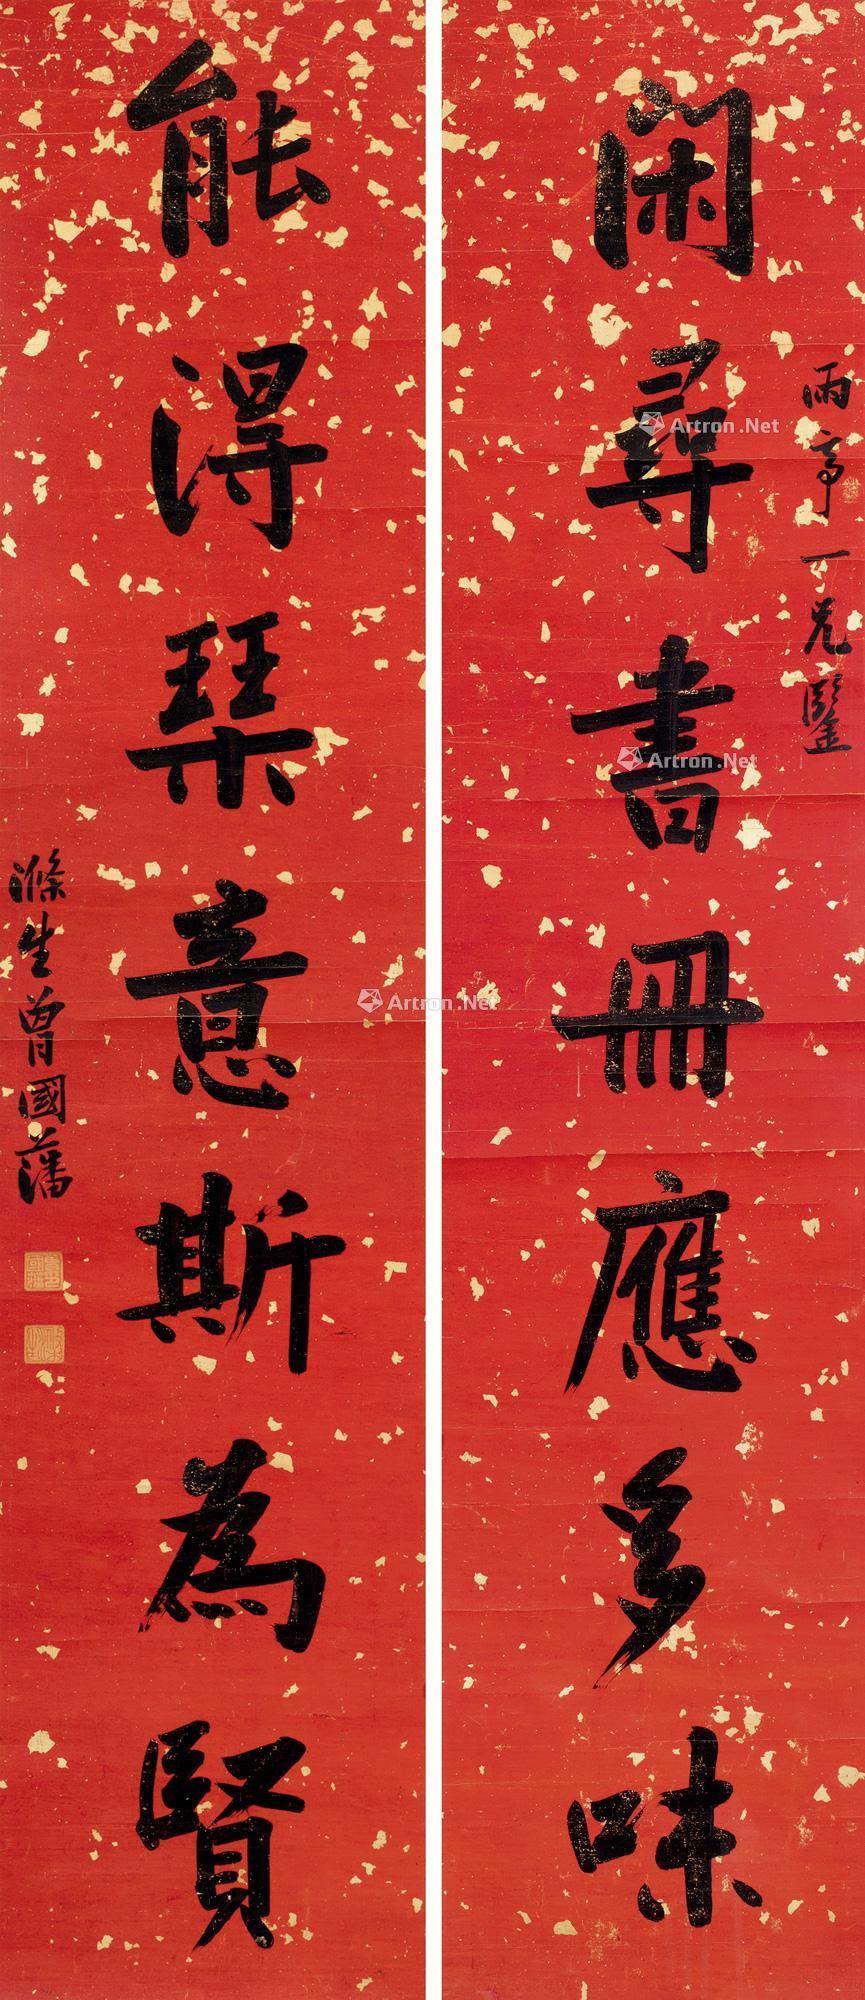 雨亭一兄鑒
閑尋書冊應多味
能得琴意斯為賢
滌生曾國藩
Artron.Net
Artron.Net
Artron.Net